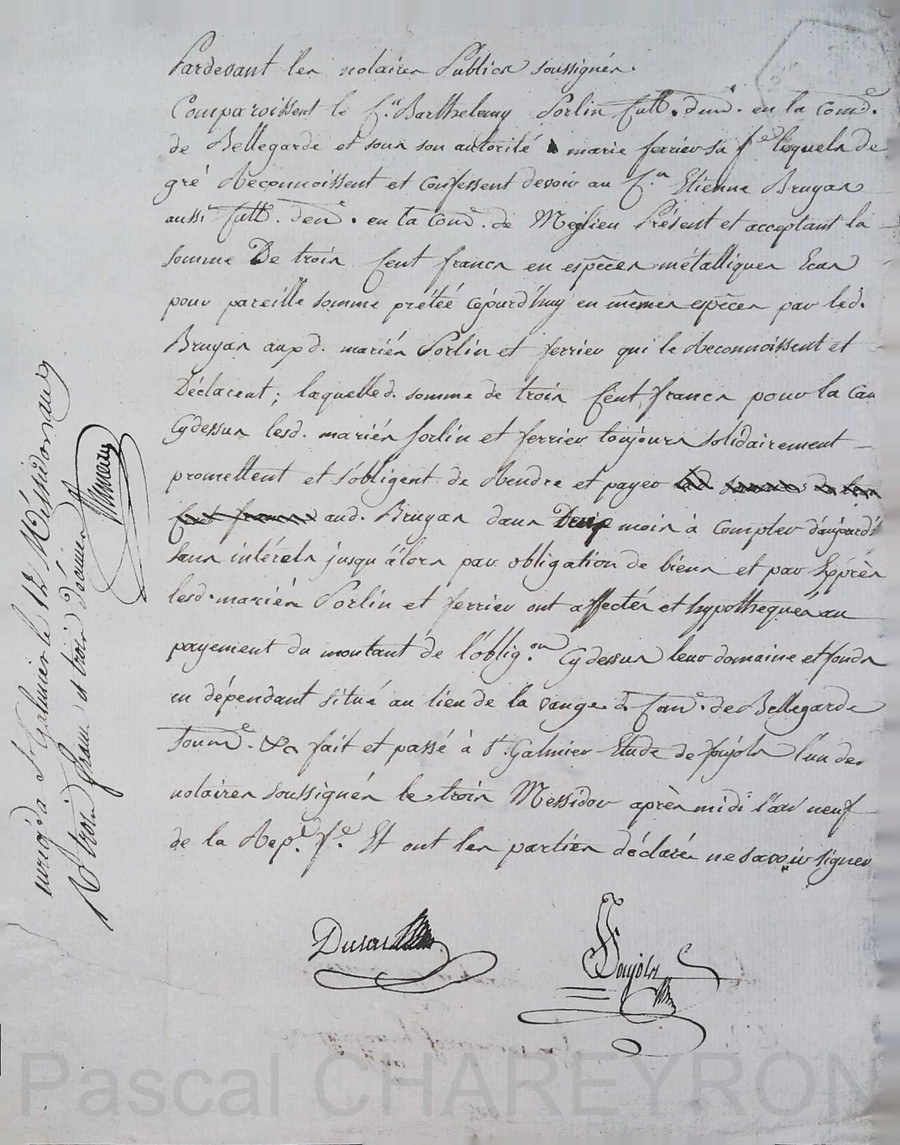 Pardevant les notaires Publics soussignés.
Comparoissent le c.en Barthelemy Sorlin cult. dem.t en la com.e
de Bellegarde et sous son autorité marie ferrier sa f.e lesquels de
gré Reconnoissent et confessent devoir au C.en Etienne Bruyas
aussi cult. dem.t en la com.e de Meylieu Présent et acceptant la
somme De trois Cent francs en espèces métalliques Ecus
pour pareille somme prêtée cejourd'huy en mêmes espèces par led.
Bruyas auxd. mariés Sorlin et ferrier qui le Reconnoissent et
Déclarent ; laquelled. somme de trois Cent francs pour la cau
Cydessus lesd. mariés Sorlin et ferrier toujours solidairement
promettent et s'obligent de Rendre et payer
aud. Bruyas dans Deux mois à compter d'aujourd'
sans intérêts jusqu'alors par obligation de biens et par Exprès
lesd. mariés Sorlin et ferrier ont affectés et hypothéqués au
payement du montant de l'oblig.on Cydessus leur domaine et fonds
en dépendant situé au lieu de la d. com.e de Bellegarde
Soum.e &a fait et passé à S.t Galmier Etude de Poujols l'un des
notaires soussignés le trois Messidor après midi l'an neuf
de la Rep. f.e Et ont les parties déclaré ne savoir signer
Poujols
à S.t Galmier le 12 Messidor an 9
R trois francs et trois décimes
Pascal CHAREYRON